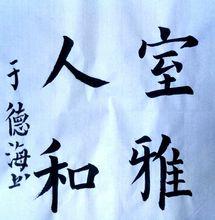 室雅
人和
于德海书